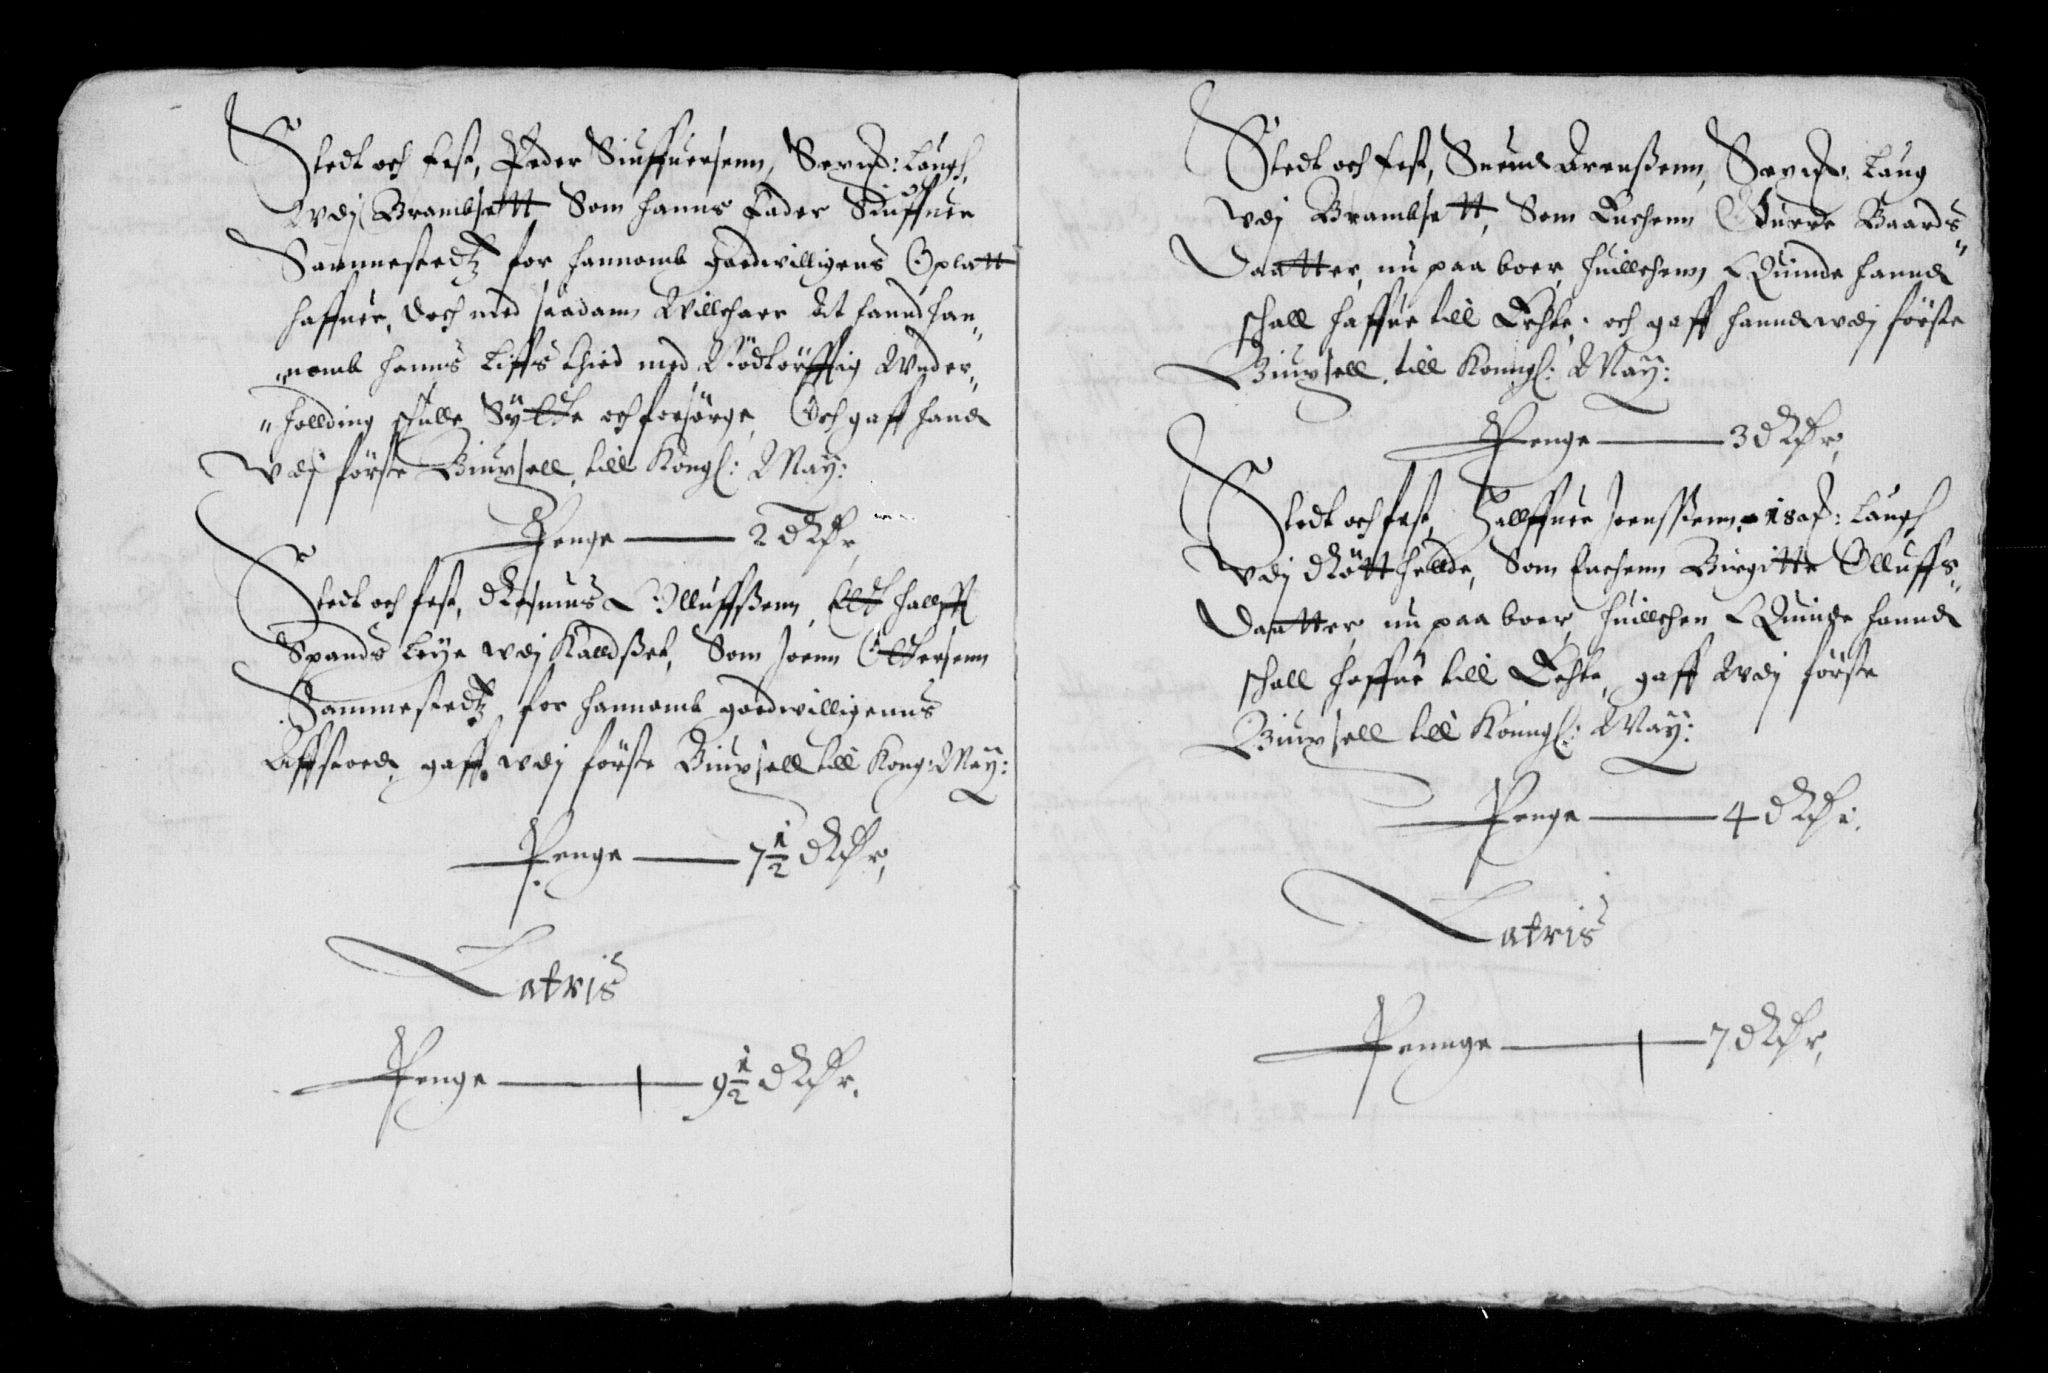 Stedt och fest, Peder Siuffuersenn, Sexp: Laugh,
Wdj Brambsett, Som hanns Fader Siuffuer
Sammestedtz for hannomb goedwilligens Oplatt
haffuer, Doch med saadann Willchaar At hannd han¬
nomb hanns Liffs thied med Nödtörfftig Wnder¬
holding schulle Sÿcke och forsörge, Och gaff hand
wdj förste Biuxsell, till Kongl: May:
Penge ——— 2 dlr,
Stedt och fest, Rasmus Olluffssenn, Ett halff
Spands Leye wdj Kalldsset, Som Joenn Ottersenn
Sammestedtz for hannomb goedwilligenns
Affstoed, gaff wdj förste Biuxsell till Kong: May:
Penge ——— 7½ dlr,
Latris
Penge ——— 9½ dlr.
Stedt och fest, Suend Arenssenn, Laug
wdj Brambsett, Som Enchenn Gurre Baards
Daatter, nu paa boer, huillchenn Quinde hannd
schall haffue till Echte, och gaff hannd wdj förste
Biuxsell, till Konngl: May:
Penge ——— 3 dlr,
Stedt och fest, Hallffuer Joenssenn, 18 Laugh
Wdj Rötthellde, Som Enchenn Birgitte Olluffs¬
daatter, nu paa boer, huillchen Quinde hannd
schall haffue till Echte, gaff Wdj förste
Biuxsell till Konngl: May:
Penge ——— 4 dlr.
Latris
Pennge ——— 7 dlr,